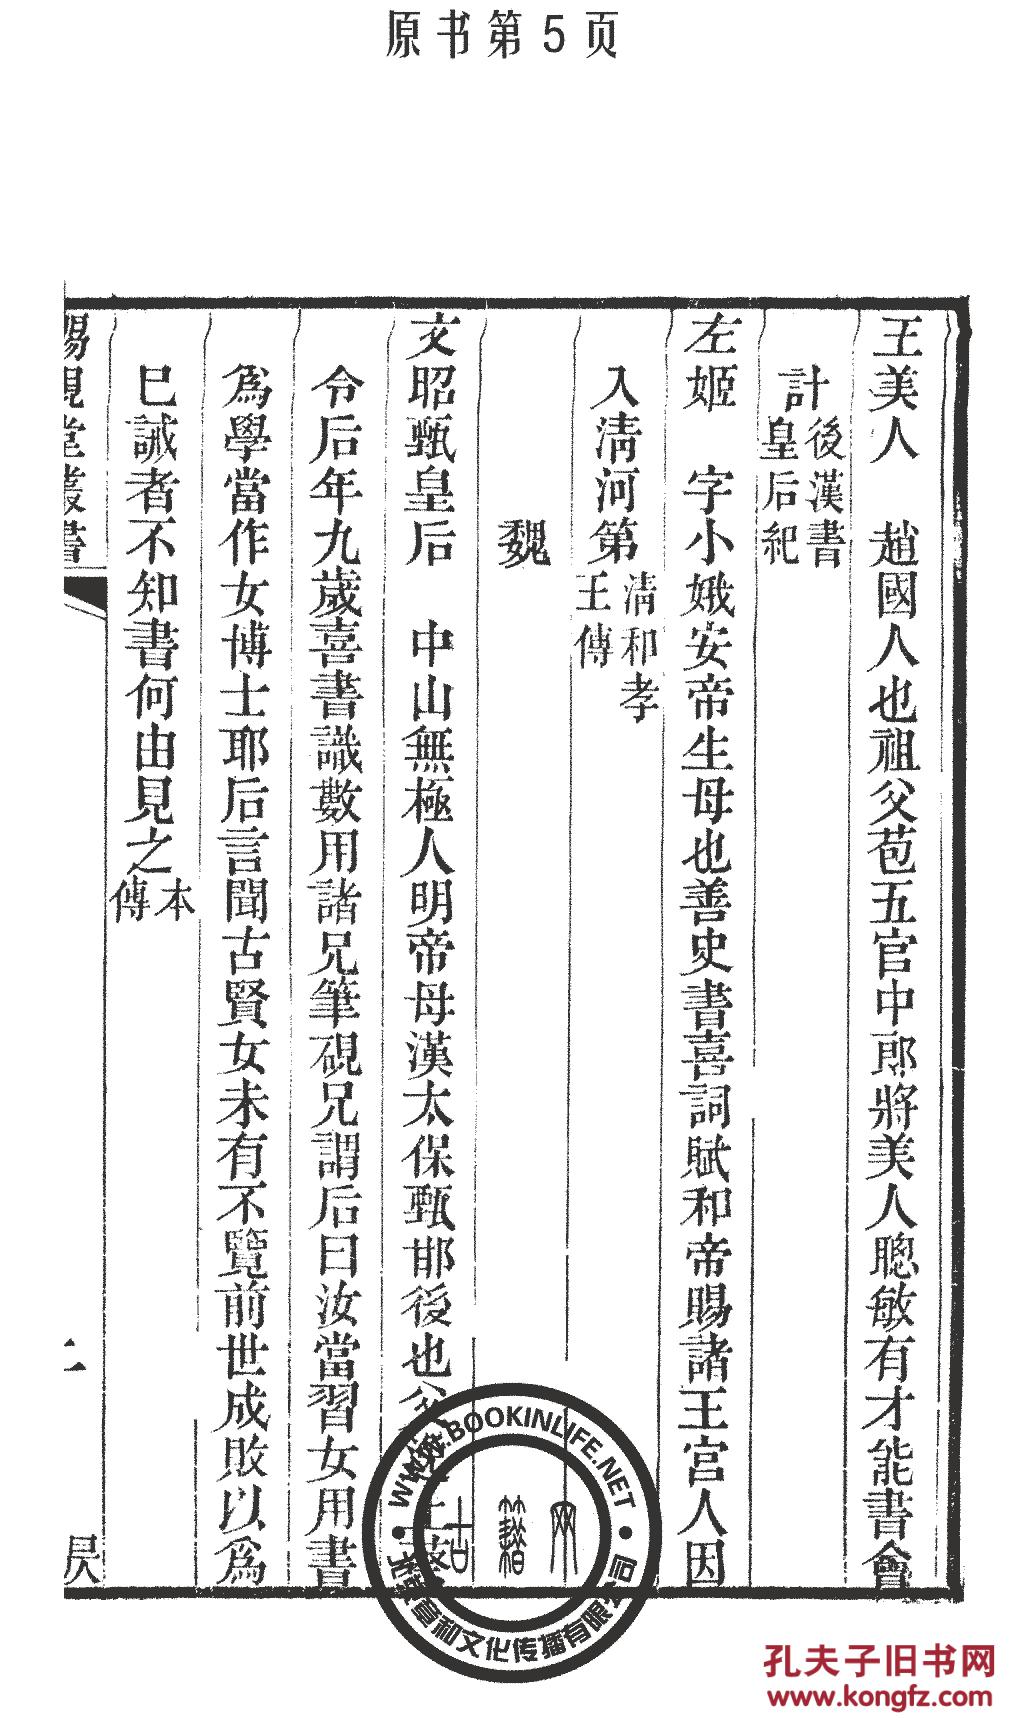 原书第5页
王美人　趙國人也祖父苞五官中郎將美人聰敏有才能書會
計後漢書皇后紀
左姬　字小娥安帝生母也善史書喜詞賦和帝賜諸王宮人因
入清河第清和孝王傳
魏
文昭甄皇后　中山無極人明帝母漢太保甄邯後也父
令后年九歲喜書識數用諸兄筆硯兄謂后曰汝當習女用書
爲學當作女博士耶后言聞古賢女未有不覽前世成敗以爲
已誡者不知書何由見之本傳
賜硯堂叢書
WWW.BOOKINLIFE.NET
古籍网
章和文化传播有限公司
孔夫子旧书网
www.kongfz.com